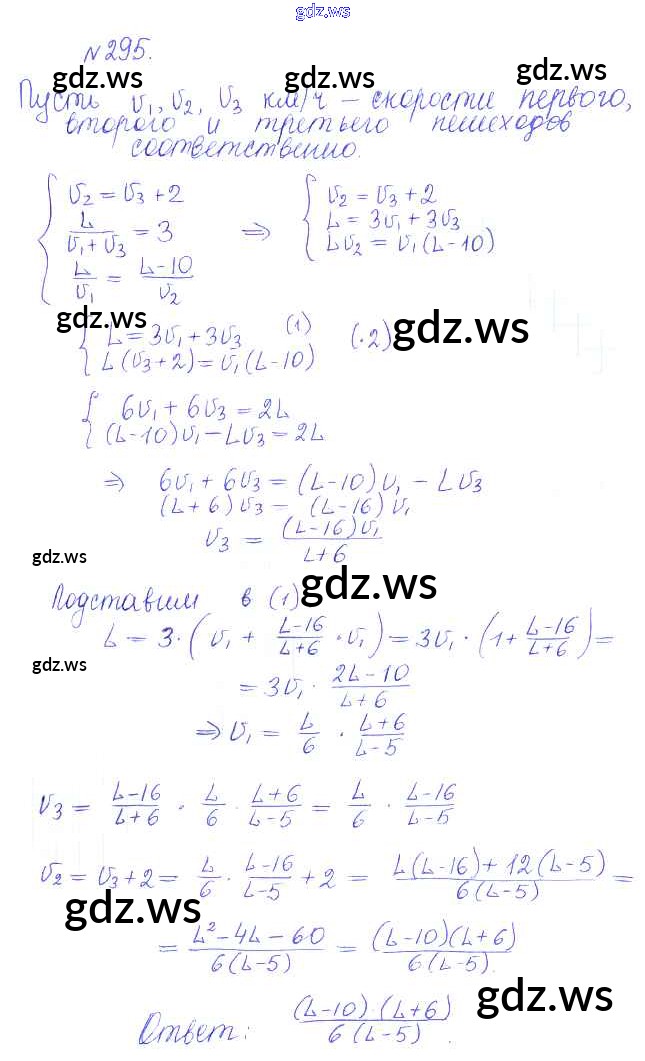 gdz.ws
№295.
gdz.ws gdz.ws
Пусть v₁, v₂, v₃ км/ч – скорости первого,
второго и третьего пешеходов
соответственно.
{ v₂ = v₃ + 2 ⇒ { v₂ = v₃ + 2
L/(v₁ + v₃) = 3 L = 3v₁ + 3v₃
L/v₁ = (L-10)/v₂ Lv₂ = v₁(L-10)
gdz.ws gdz.ws
{ L = 3v₁ + 3v₃ (1) (·2)
L(v₃+2) = v₁(L-10)
{ 6v₁ + 6v₃ = 2L
(L-10)v₁ - Lv₃ = 2L
⇒ 6v₁ + 6v₃ = (L-10)v₁ - Lv₃
(L+6)v₃ = (L-16)v₁
v₃ = (L-16)v₁/(L+6)
gdz.ws gdz.ws
Подставим в (1)
L = 3·(v₁ + (L-16)/(L+6) · v₁) = 3v₁·(1 + (L-16)/(L+6)) =
gdz.ws
= 3v₁ · (2L-10)/(L+6)
⇒ v₁ = L/6 · (L+6)/(L-5)
v₃ = (L-16)/(L+6) · L/6 · (L+6)/(L-5) = L/6 · (L-16)/(L-5)
v₂ = v₃ + 2 = L/6 · (L-16)/(L-5) + 2 = (L(L-16) + 12(L-5))/(6(L-5)) =
gdz.ws
= (L² - 4L - 60)/(6(L-5)) = (L-10)(L+6)/(6(L-5)).
gdz.ws
Ответ: (L-10)·(L+6)/(6(L-5)).